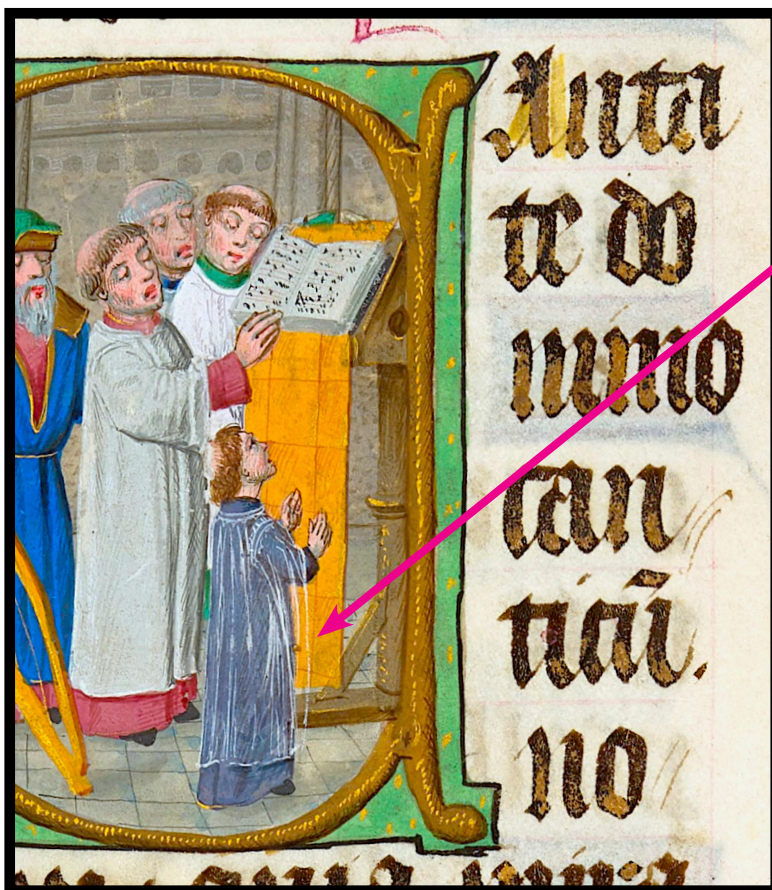 Anta
te do
mino
can
ticū.
no